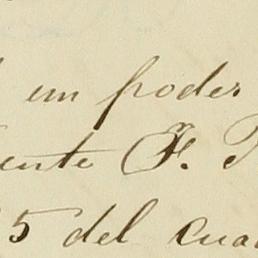 un poder
ente F.
5 del cua